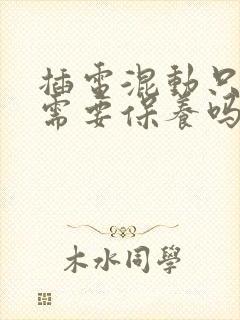 插電混動只
需要保養嗎
木水同學